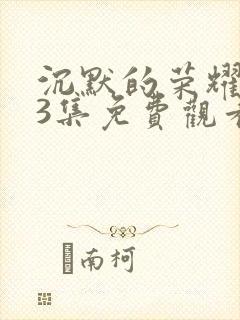 沉默的荣耀
3集免費觀看
南柯